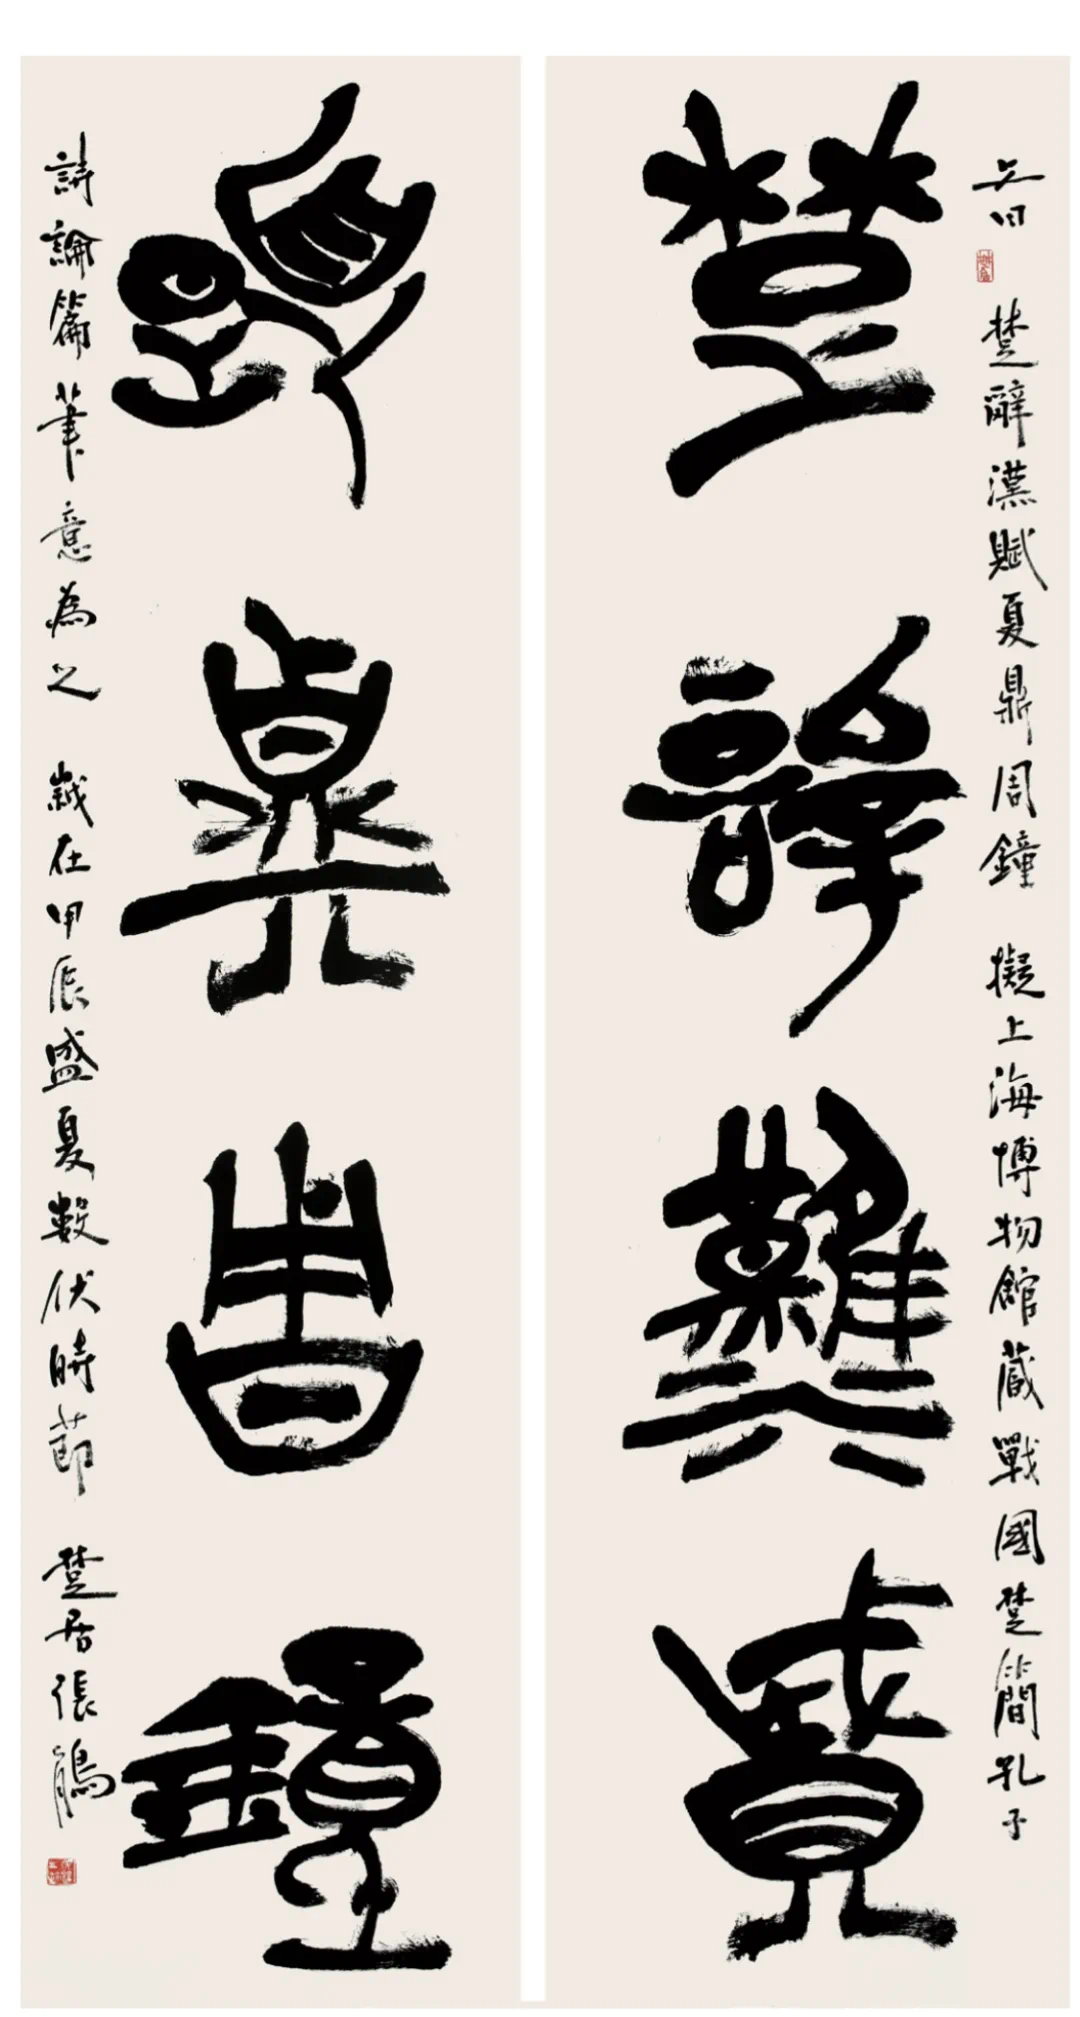 楚辭漢賦
夏鼎周鐘
文曰 楚辭漢賦夏鼎周鐘 擬上海博物館藏戰國楚簡孔子
詩論篇筆意為之 歲在甲辰盛夏數伏時節 楚居張